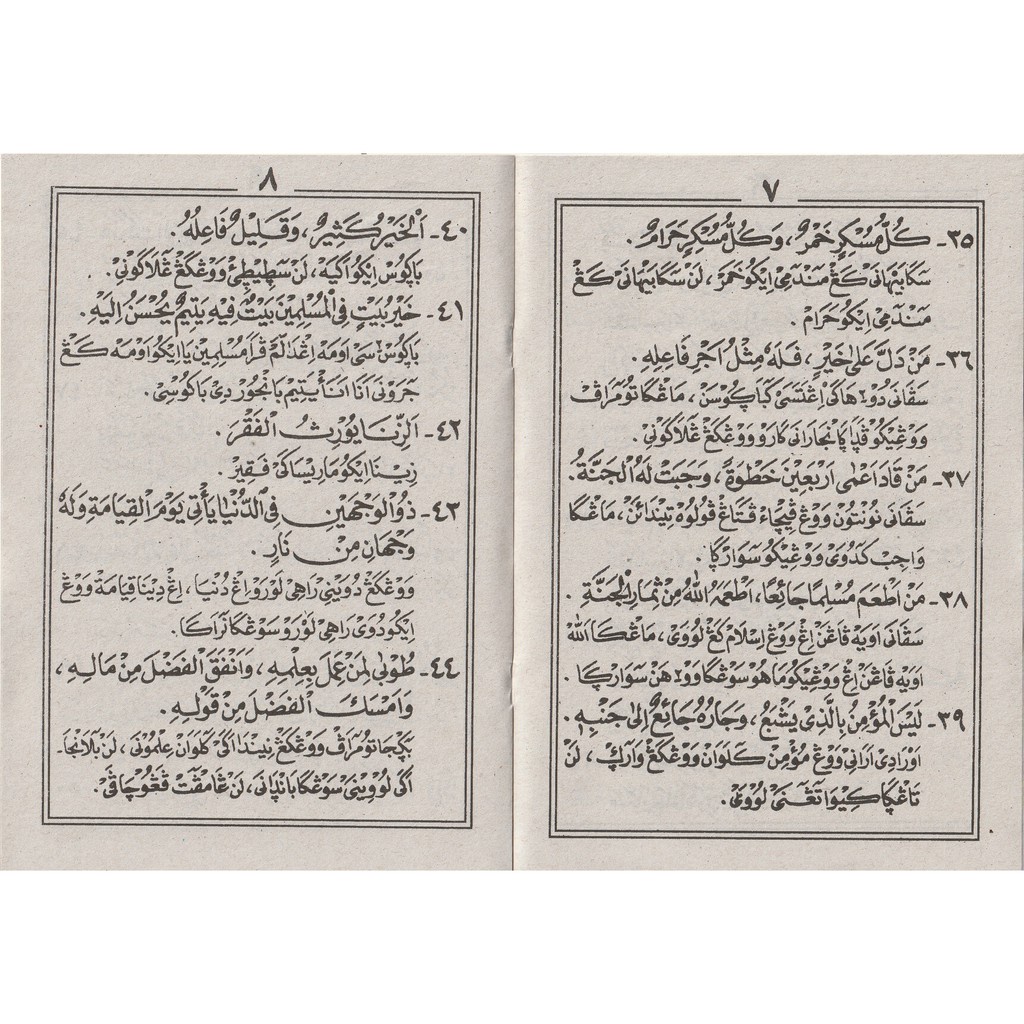 ٧
٣٥- كُلُّ مُسْكِرٍ خَمْرٌ، وَكُلُّ مُسْكِرٍ حَرَامٌ.
سكابيهانى كڠ مندمى ايكو خمر، لن سكابيهانى كڠ
مندمى ايكو حرام.
٣٦- مَنْ دَلَّ عَلٰى خَيْرٍ، فَلَهُ مِثْلُ اَجْرِ فَاعِلِهِ.
سڤانى دودوهاكى اڠتسى كباڮوسن، ماڠكا تومراڤ
ووڠيكو ڤڎا ڮانجارانى كارو ووڠكڠ ڠلاكونى.
٣٧- مَنْ قَادَ اَعْمٰى اَرْبَعِيْنَ خَطْوَةً، وَجَبَتْ لَهُ الْجَنَّةُ.
سڤانى نونتون ووڠ ڤيچاء ڤتاڠ ڤولوه تيندائن، ماڠكا
واجب كدوى ووڠيكو سوارڮا.
٣٨- مَنْ اَطْعَمَ مُسْلِمًا جَائِعًا، اَطْعَمَهُ اللهُ مِنْ ثِمَارِ الْجَنَّةِ.
سڤانى اويه ڤاڠن اڠ ووڠ اسلام كڠ لووى، ماڠكا الله
اويه ڤاڠن اڠ ووڠيكو ماهو سوڠكا ووهوهن سوارڮا.
٣٩- لَيْسَ الْمُؤْمِنُ بِالَّذِى يَشْبَعُ، وَجَارُهُ جَائِعٌ اِلٰى جَنْبِهِ.
اورا دى ارانى ووڠ مؤمن كلوان ووڠكڠ وارڮ، لن
تاڠڮا كيوا تڠنى لووى.
٨
٤٠- اَلْخَيْرُ كَثِيْرٌ، وَقَلِيْلٌ فَاعِلُهُ.
باڮوس ايكو اكيه، لن سطيطئ ووڠكڠ ڠلاكونى.
٤١- خَيْرُ بَيْتٍ فِى الْمُسْلِمِيْنَ بَيْتٌ فِيْهِ يَتِيْمٌ يُحْسَنُ اِلَيْهِ.
باڮوس سى اومه اڠدالم ڤرا مسلمين يا ايكو اومه كڠ
جرونى انا انأ يتيم بانجور دى باڮوسى.
٤٢- اَلزِّنَا يُوْرِثُ الْفَقْرَ.
زينا ايكو ماريساكى فقير.
٤٣- ذُو الْوَجْهَيْنِ فِى الدُّنْيَا يَأْتِى يَوْمَ الْقِيَامَةِ وَلَهُ
وَجْهَانِ مِنْ نَارٍ.
ووڠكڠ دوينى راهى لورو اڠ دنيا، اڠ دينا قيامة ووڠ
ايكو دوى راهى لورو سوڠكا نراكا.
٤٤- طُوْبٰى لِمَنْ عَمِلَ بِعِلْمِهِ، وَاَنْفَقَ الْفَضْلَ مِنْ مَالِهِ،
وَاَمْسَكَ الْفَضْلَ مِنْ قَوْلِهِ.
بڮجا تومراڤ ووڠكڠ نيندا اكى كلوان علمونى، لن بلانجا-
اكى لووينى سوڠكا بانڎانى، لن ڠامڤت ڤڠوچاڤى.